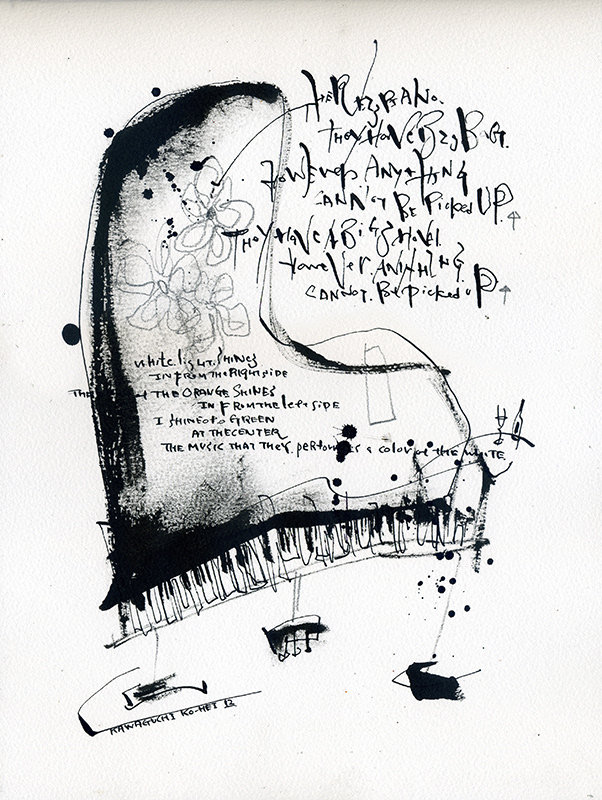 THEY HAVE BIG BAG.
HOWEVER ANYTHING
CANNOT BE PICKED UP.
THEY HAVE A BIG SHOVEL
HOWEVER. ANYTHING.
CANNOT. BE PICKED UP
WHITE LIGHT. SHINES
IN FROM THE RIGHT SIDE
THE ORANGE SHINES
IN FROM THE LEFT SIDE
I SHINE GREEN
AT THE CENTER
THE MUSIC THAT THEY. PERFORM IS A COLOR OF THE WHITE
KAWAGUCHI KO-HEI